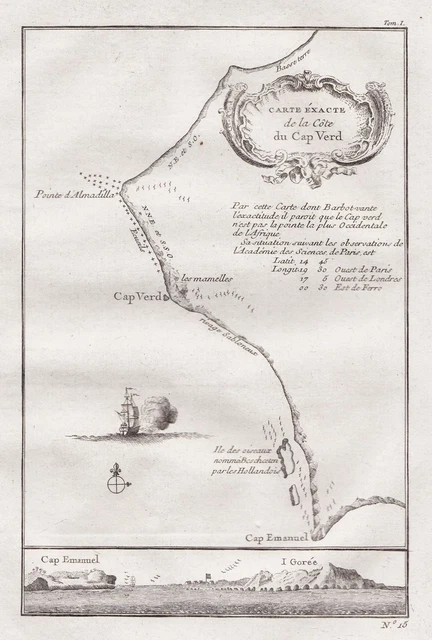 Tom. I.
Basse terre
CARTE ÉXACTE
de la Côte
du Cap Verd
N.E. & S.O.
Pointe d'Almadilla
NNE & SSO.
Par cette Carte dont Barbot vante
l'exactitude il paroit que le Cap verd
n'est pas la pointe la plus Occidentale
de l'Afrique
Sa situation suivant les observations de
l'Académie des Sciences, de Paris, est
Latit. 14 45
Longit. 19 30 Ouest de Paris
17 5 Ouest de Londres
00 30 Est de Ferro
les mamelles
Cap Verd
rivage Sabloneux
Ile des oiseaux
nommé Beschesen
par les Hollandois
Cap Emanuel
Cap Emanuel
I Gorée
N.º 15